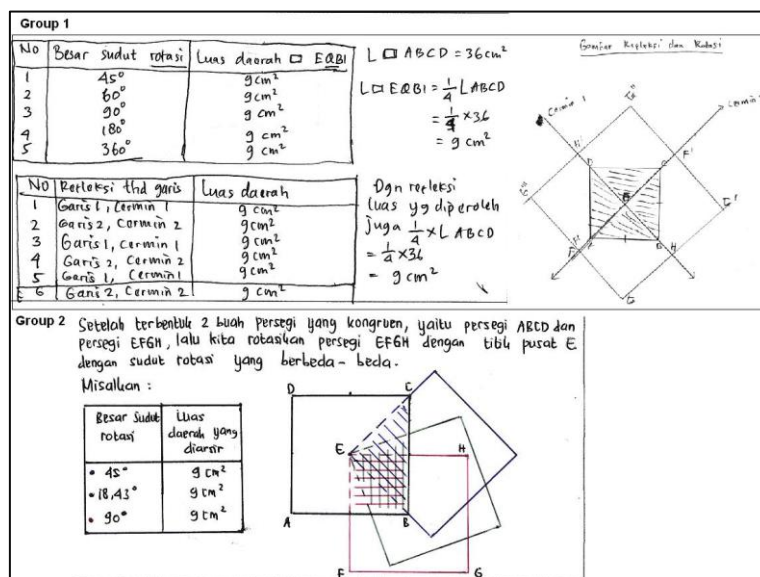 Group 1
No | Besar sudut rotasi | Luas daerah □ EQBI
1 | 45° | 9 cm²
2 | 60° | 9 cm²
3 | 90° | 9 cm²
4 | 180° | 9 cm²
5 | 360° | 9 cm²
L □ ABCD = 36 cm²
L □ EQBI = 1/4 L ABCD
= 1/4 × 36
= 9 cm²
No | Refleksi thd garis | Luas daerah
1 | Garis 1, Cermin 1 | 9 cm²
2 | Garis 2, Cermin 2 | 9 cm²
3 | Garis 1, Cermin 1 | 9 cm²
4 | Garis 2, Cermin 2 | 9 cm²
5 | Garis 1, Cermin 1 | 9 cm²
6 | Garis 2, Cermin 2 | 9 cm²
Dgn refleksi
luas yg diperoleh
juga 1/4 × L ABCD
= 1/4 × 36
= 9 cm²
Gambar Refleksi dan Rotasi
Cermin 1
Cermin
D
C
F'
A
B
H
G
Group 2
Setelah terbentuk 2 buah persegi yang kongruen, yaitu persegi ABCD dan
persegi EFGH, lalu kita rotasikan persegi EFGH dengan titik pusat E
dengan sudut rotasi yang berbeda-beda.
Misalkan :
Besar Sudut rotasi | Luas daerah yang diarsir
• 45° | 9 cm²
• 18,43° | 9 cm²
• 90° | 9 cm²
D
C
E
H
A
B
F
G